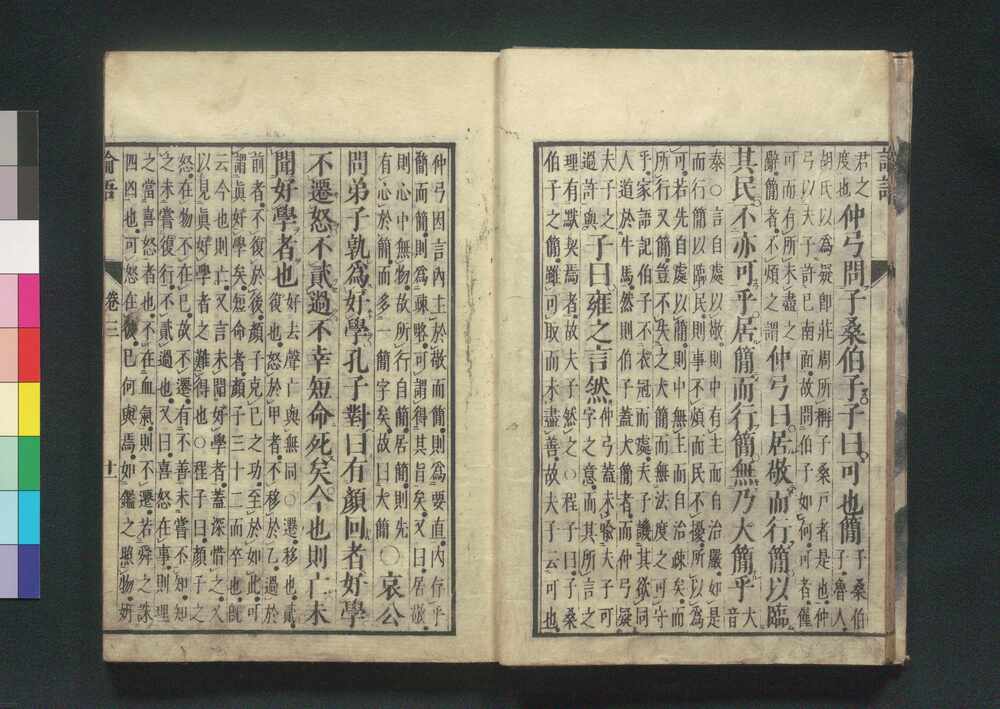 論語
君之
度也
仲弓問子桑伯子子曰可也簡
子桑伯
子魯人
胡氏以為疑卽莊周所稱子桑戸者是也仲
弓以夫子許已南面故問伯子如何可者僅
可而有所未盡之
辭簡者不煩之謂
仲弓曰居敬而行簡以臨
其民不亦可乎居簡而行簡無乃大簡乎
大
音
泰○言自處以敬則中有主而自治嚴如是
而行簡以臨民則事不煩而民不擾所以為
可若先自處以簡則中無主而自治疎矣而
所行又簡豈不失之大簡而無法度之可守
乎家語記伯子不衣冠而處夫子譏其欲同
人道於牛馬然則伯子蓋大簡者而仲弓疑
夫子之
過許與
子曰雍之言然
仲弓蓋未喩夫子可
字之意而其所言之
理有默契焉者故夫子然之○程子曰子桑
伯子之簡雖可取而未盡善故夫子云可也
仲弓因言內主於敬而簡則為要直內存乎
簡而簡則為疎略可謂得其旨矣又曰居敬
則心中無物故所行自簡居簡則先
有心於簡而多一簡字矣故曰大簡
○哀公
問弟子孰為好學孔子對曰有顏回者好學
不遷怒不貳過不幸短命死矣今也則亡未
聞好學者也
好去聲亡與無同○遷移也貳
復也怒於甲者不移於乙過於
前者不復於後顏子克已之功至於如此可
謂眞好學矣短命者顏子三十二而卒也旣
云今也則亡又言未聞好學者蓋深惜之又
以見眞好學者之難得也○程子曰顏子之
怒在物不在已故不遷有不善未嘗不知知
之未嘗復行不貳過也又曰喜怒在事則理
之當喜怒者也不在血氣則不遷若舜之誅
四凶也可怒在彼已何與焉如鑑之照物妍
論語
卷三
十一